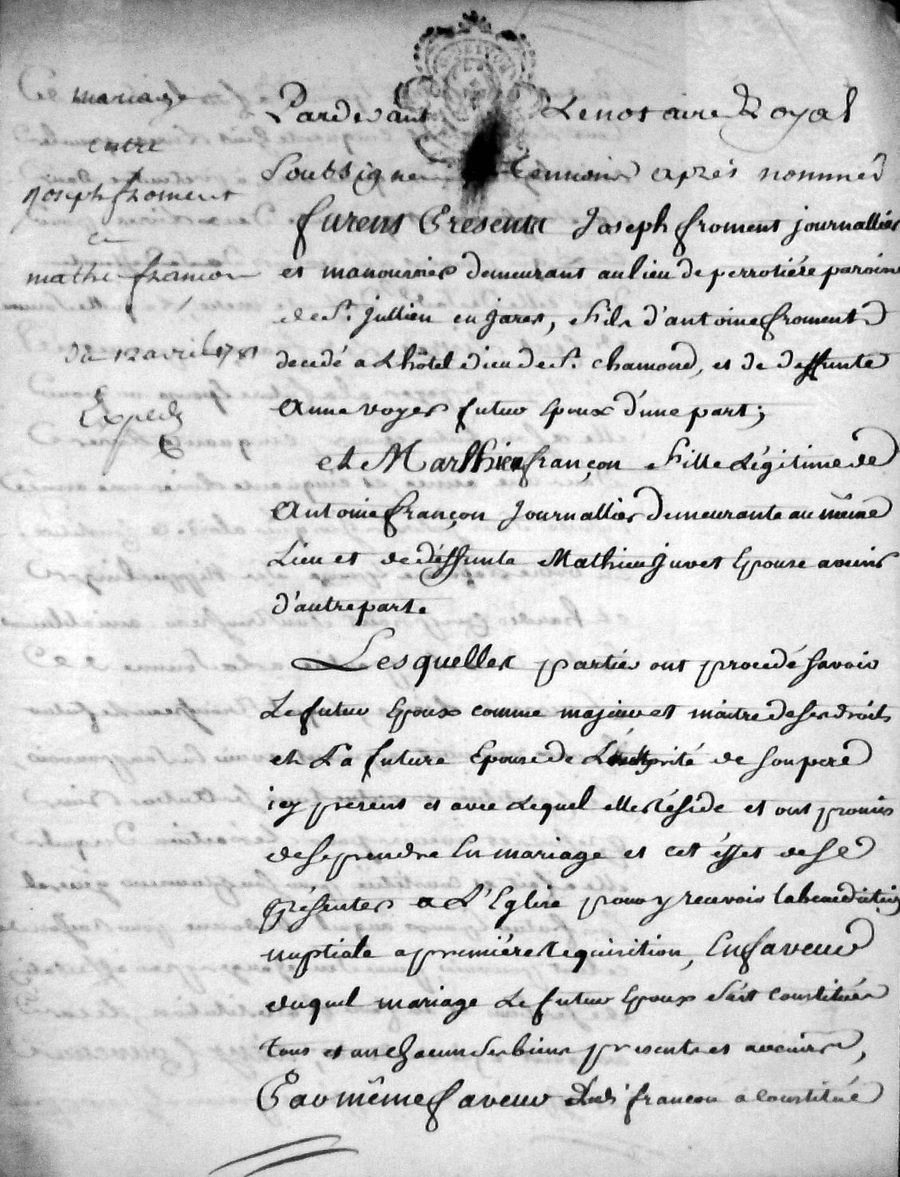 mariage
entre
Joseph froment
et
mathie françon
du 12 avril 1781
Expedié
Pardevant Le notaire Royal
Soussigné temoins après nommés
furent Presents Joseph froment journallier
et manouvrier demeurant au lieu de perrotiére paroisse
de St. Jullien en jarez, fils d'antoine froment
decedé a L'hôtel dieu de St. chamond, et de deffunte
Anne voyer futur Epoux d'une part;
et Marthie françon fille Légitime de
Antoine françon Journallier Demeurante au même
Lieu et de déffunte Mathieu Juvet Epouse avenir
d'autre part.
Lesquelles parties ont procédé savoir
Le futur Epoux comme majeur et maitre de ses droits
et La future Epouse de L'authorité de son pere
icy present et avec Lequel elle réside et ont promis
de se prendre En mariage et cet éffet de se
présenter a L'Eglise pour y recevoir la benediction
nuptiale a premiére Requisition, En faveur
duquel mariage Le futur Epoux s'est constitués
tous et un chacun ses biens presents et avenirs,
Et au même faveur Ledi françon a constitué